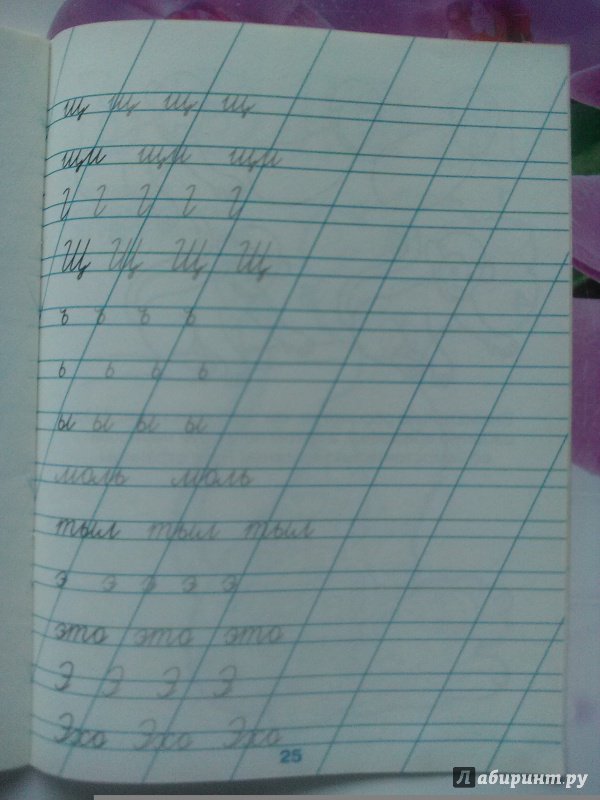 щ щ щ щ
щи щи щи
Г Г Г Г Г
Щ Щ Щ Щ
ъ ъ ъ ъ
ь ь ь ь
ы ы ы ы
моль моль
тыл тыл тыл
э э э э э
это это это
Э Э Э Э
Эхо Эхо Эхо
25
Лабиринт.ру